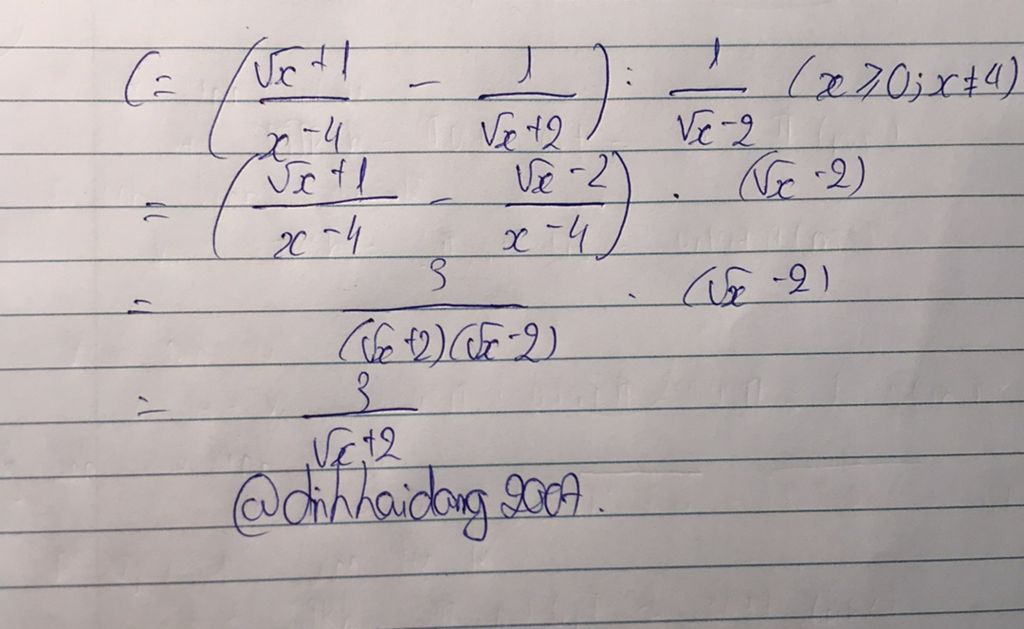 C = (√x +1 / x -4 - 1 / √x +2) : 1 / √x -2 (x ⩾ 0; x ≠ 4)
= (√x +1 / x -4 - √x -2 / x -4) . (√x -2)
= 3 / (√x +2)(√x -2) . (√x -2)
= 3 / √x +2
@dinhhaidang2007.